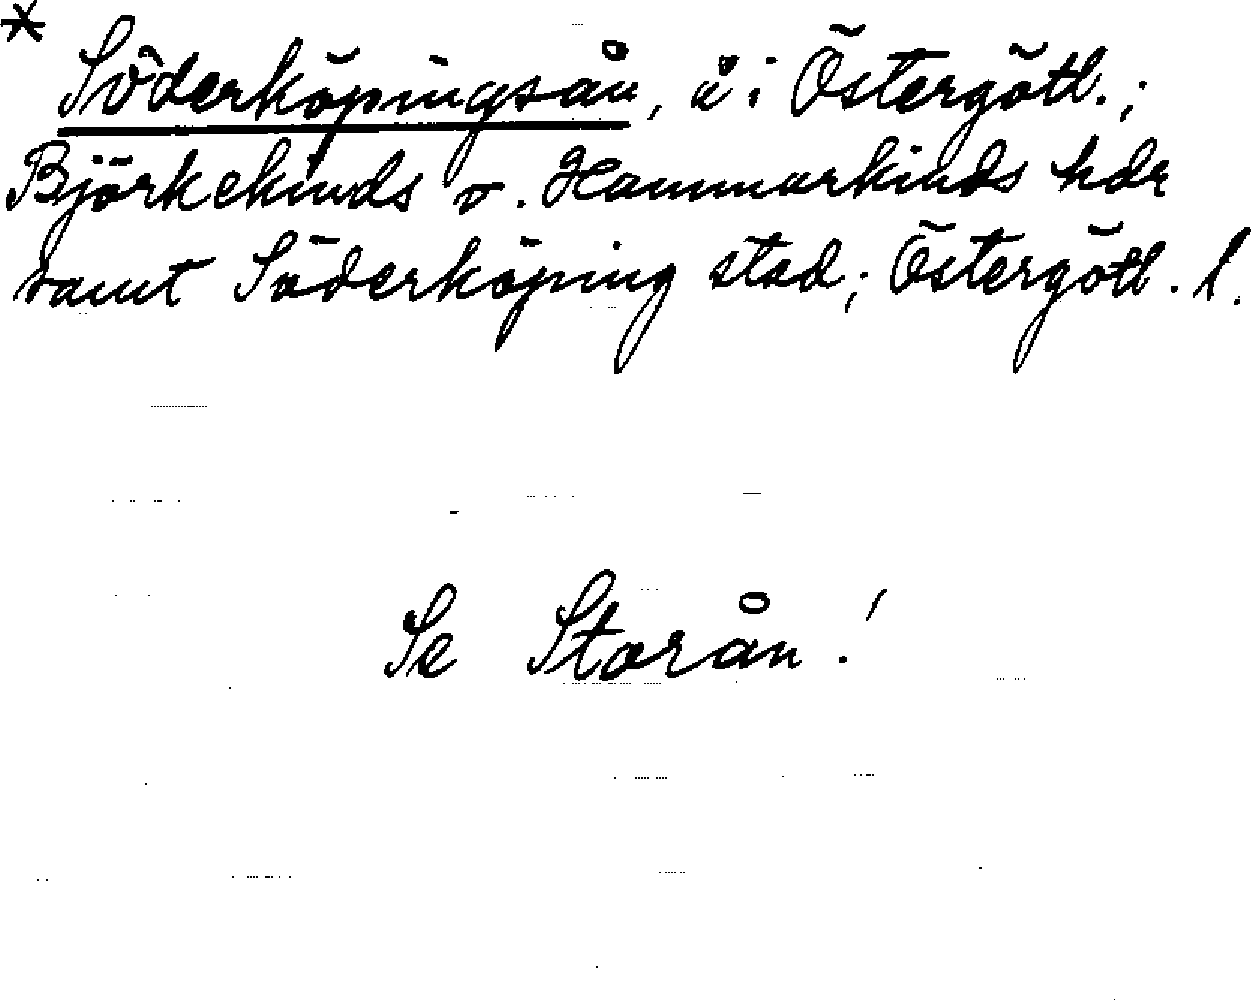 * Söderköpingsån, å i Östergötl.;
Björkekinds o. Hammarkinds hdr
samt Söderköping stad; Östergötl. l.
Se Storån!